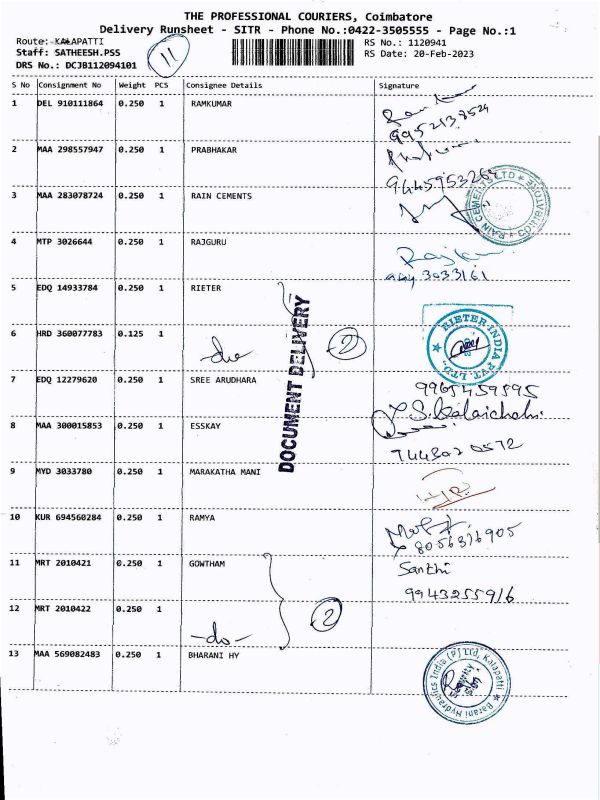 THE PROFESSIONAL COURIERS, Coimbatore
Delivery Runsheet - SITR - Phone No.:0422-3505555 - Page No.:1
Route: KALAPATTI
Staff: SATHEESH.PSS
DRS No.: DCJB112094101
11
RS No.: 1120941
RS Date: 20-Feb-2023
S No Consignment No Weight PCS Consignee Details Signature
1 DEL 910111864 0.250 1 RAMKUMAR
9952138524
2 MAA 298557947 0.250 1 PRABHAKAR
3 MAA 283078724 0.250 1 RAIN CEMENTS
RAIN CEMENTS LTD
4 MTP 3026644 0.250 1 RAJGURU
5 EDQ 14933784 0.250 1 RIETER
RIETER INDIA PVT. LTD.
6 HRD 360077783 0.125 1
-do-
2
DOCUMENT DELIVERY
7 EDQ 12279620 0.250 1 SREE ARUDHARA
9965459595
8 MAA 300015853 0.250 1 ESSKAY
9 MYD 3033780 0.250 1 MARAKATHA MANI
10 KUR 694560284 0.250 1 RAMYA
8056316905
11 MRT 2010421 0.250 1 GOWTHAM
Santhi
9943255916
12 MRT 2010422 0.250 1
-do-
2
13 MAA 569082483 0.250 1 BHARANI HY
Barani Hydraulics India (P) Ltd, Kalapatti